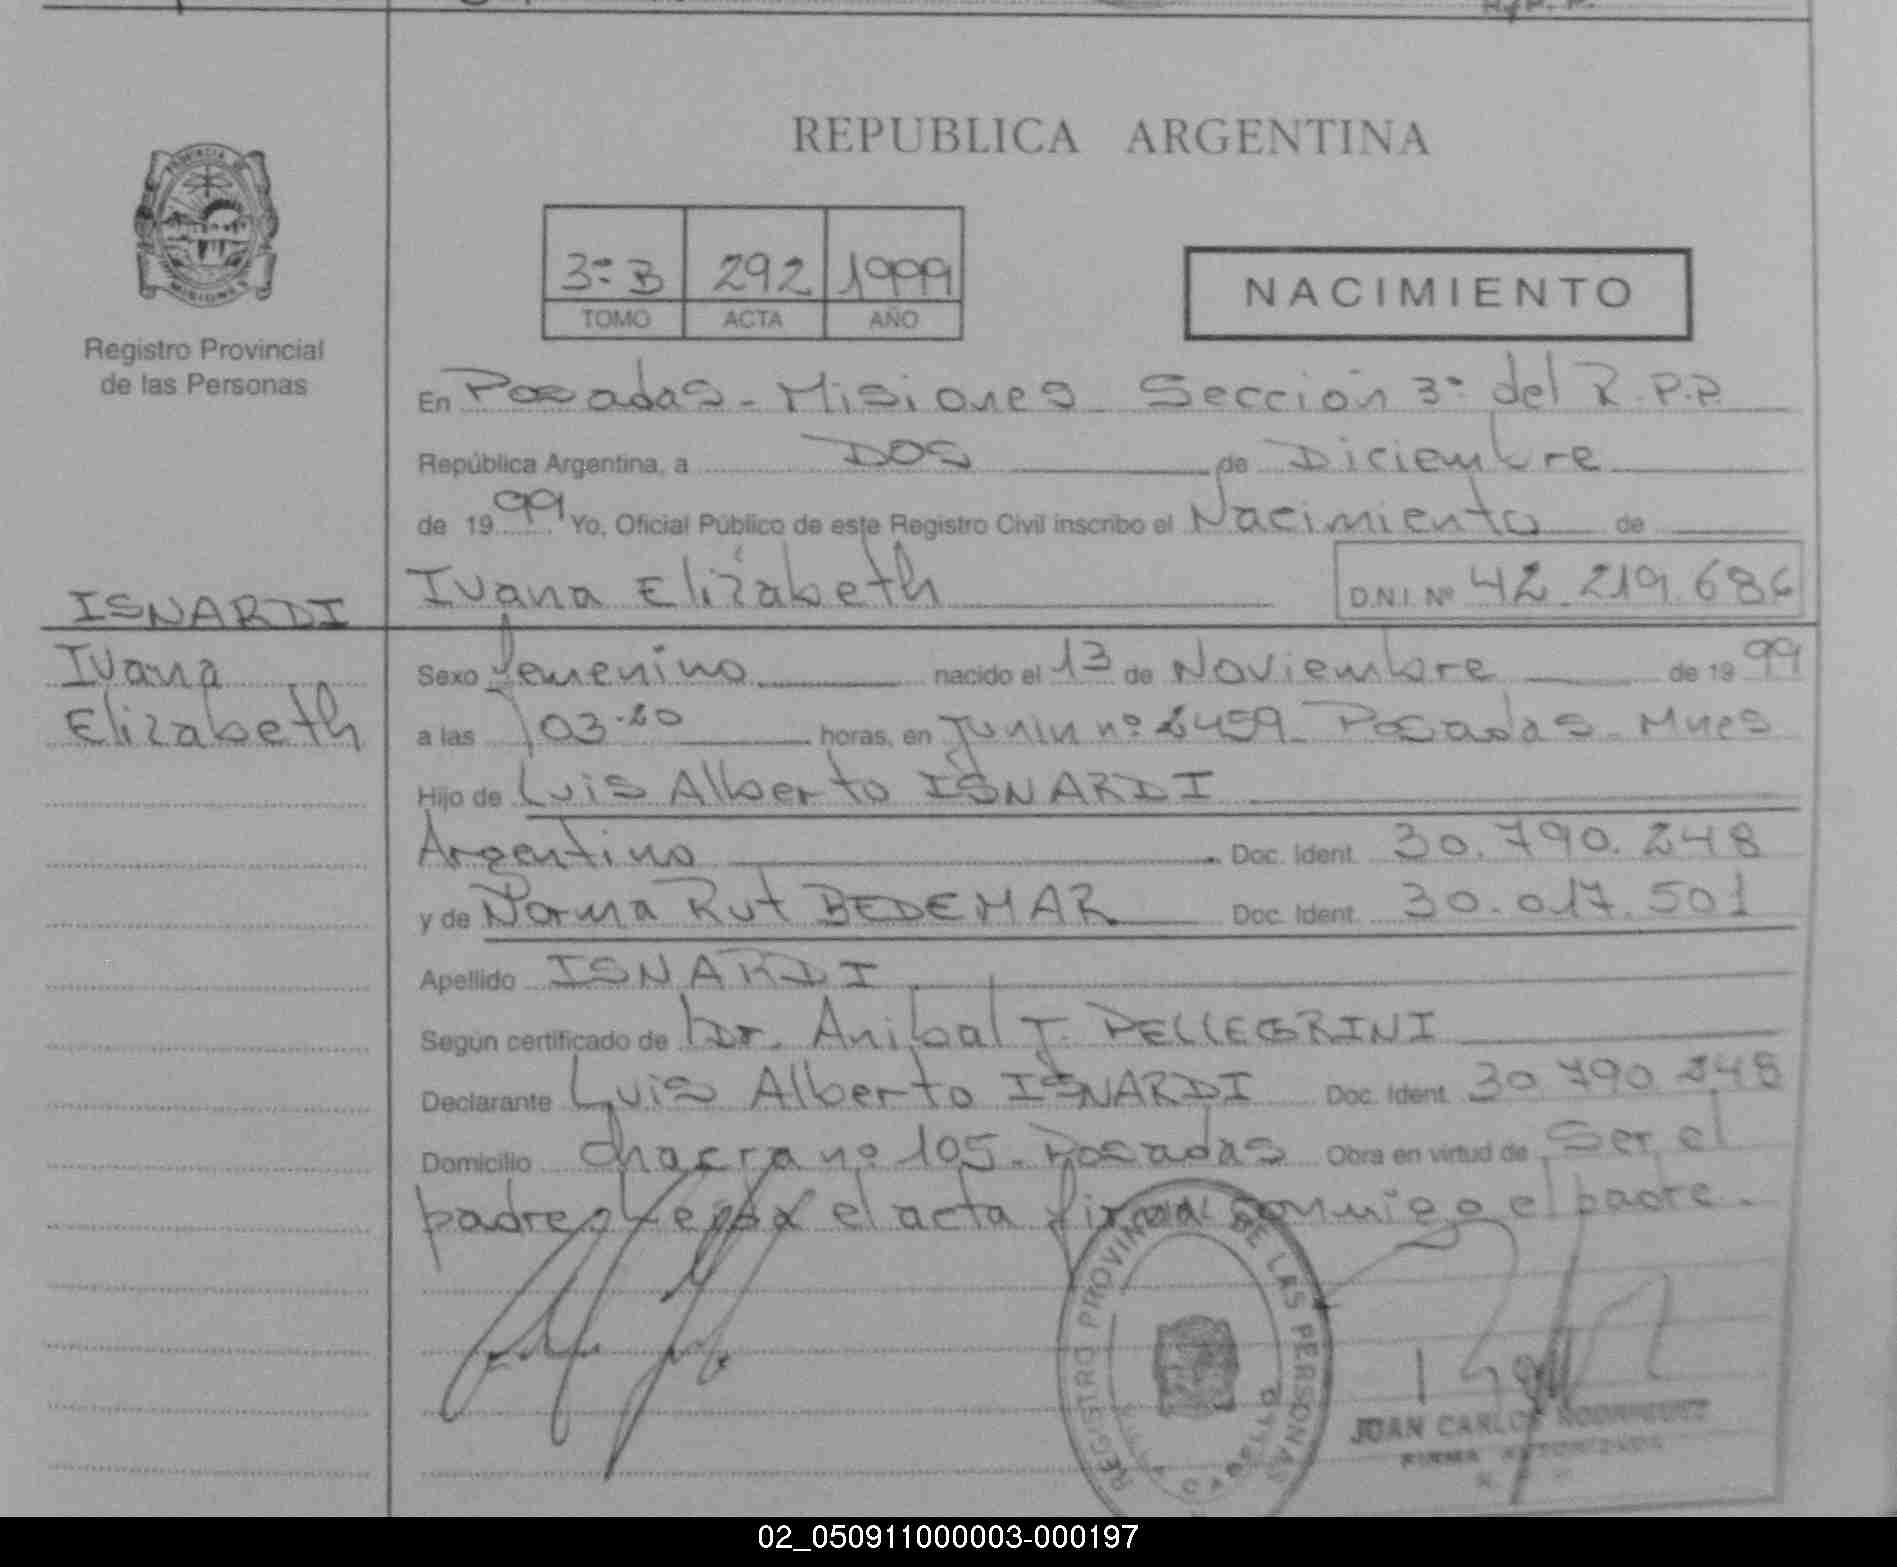 REPUBLICA ARGENTINA
PROVINCIA DE
MISIONES
3º B 292 1999
TOMO ACTA AÑO
NACIMIENTO
Registro Provincial
de las Personas
En Posadas - Misiones Sección 3º del R.P.P.
República Argentina, a DOS de Diciembre
de 1999 Yo, Oficial Público de este Registro Civil inscribo el Nacimiento de
Ivana Elizabeth D.N.I. Nº 42.219.686
ISNARDI
Ivana
Elizabeth
Sexo femenino nacido el 13 de Noviembre de 1999
a las 03.20 horas, en Junin nº 2459 - Posadas - Mnes
Hijo de Luis Alberto ISNARDI
Argentino Doc. Ident. 30.790.248
y de Norma Rut BEDEMAR Doc. Ident. 30.017.501
Apellido ISNARDI
Según certificado de Dr. Anibal J. PELLEGRINI
Declarante Luis Alberto ISNARDI Doc. Ident. 30.790.248
Domicilio chacra nº 105 - Posadas Obra en virtud de Ser el
padre Leida el acta firma conmigo el padre.
REGISTRO PROVINCIAL DE LAS PERSONAS
JUAN CARLOS RODRIGUEZ
FIRMA AUTORIZADA
02_050911000003-000197